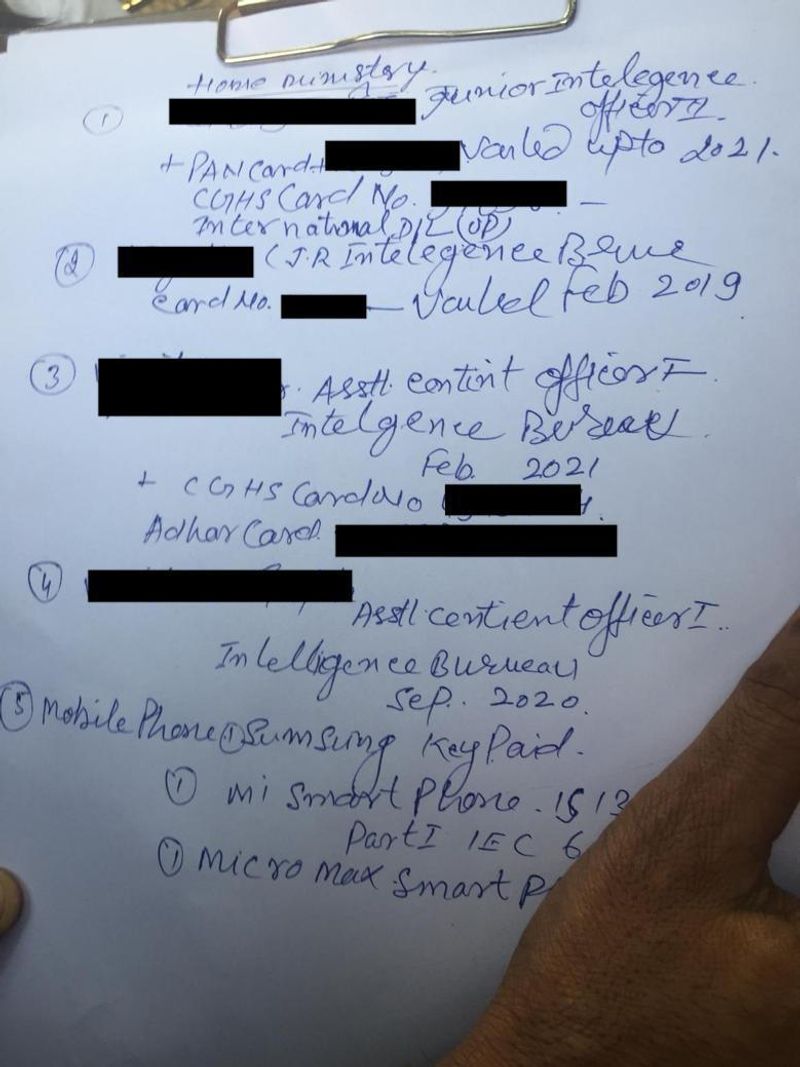 Home ministary.
① Junior Intelegence
officer II.
+ PAN Card + Vailed upto 2021.
CGHS Card No. –
International D/L (UP)
② (J.R Intelegence Breue
Card No. – Vailed Feb 2019
③ Asstt. contint officer I
Intelgence Bureau.
Feb. 2021
+ CGHS Card No
Adhar Card
④
Asstt. contient officer I.
Intelligence Burueau
Sep. 2020.
⑤ Mobile Phone ① Sumsung Key Paid.
① mi Smart Phone. IS 13
Part I IEC 6
① Micro max Smart